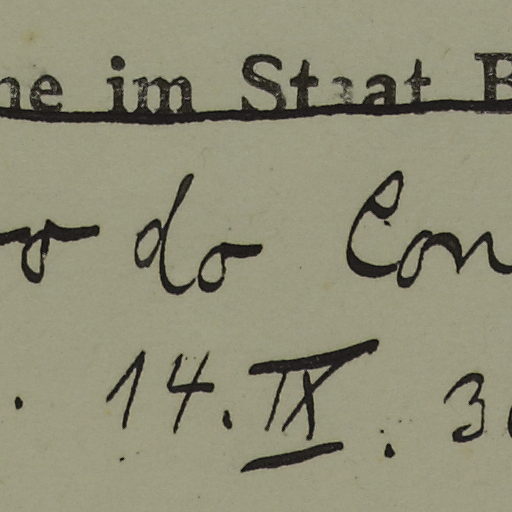 ne im Staat B
o do Con
. 14. IX. 3